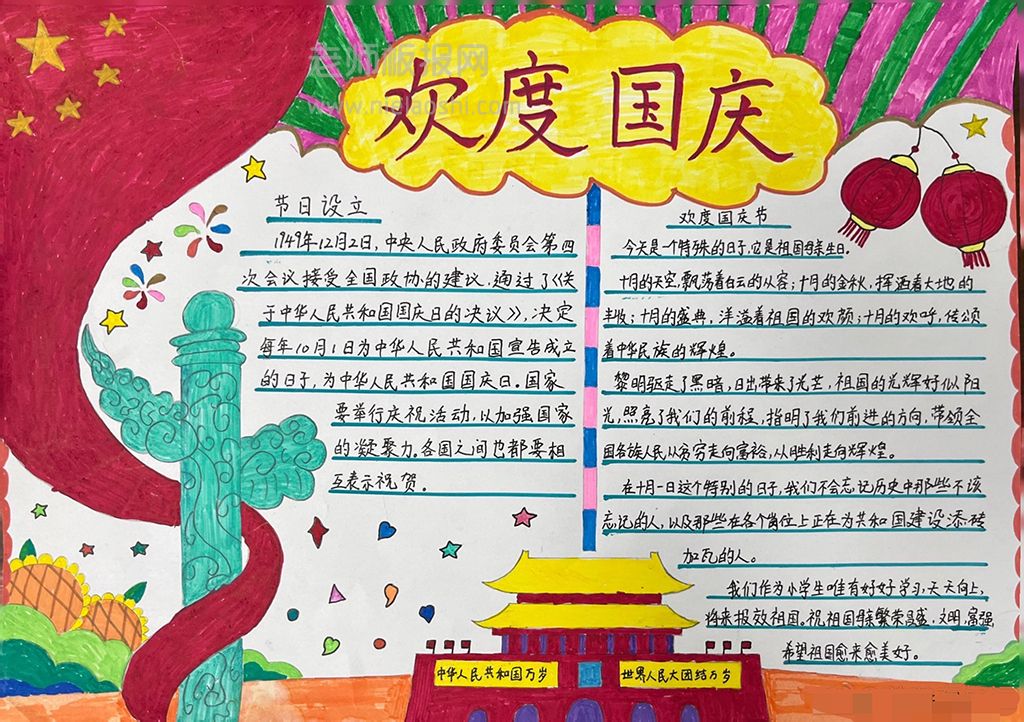 老师板报网
欢度国庆
节日设立
1949年12月2日,中央人民政府委员会第四
次会议接受全国政协的建议,通过了《关
于中华人民共和国国庆日的决议》,决定
每年10月1日为中华人民共和国宣告成立
的日子,为中华人民共和国国庆日。国家
要举行庆祝活动,以加强国家
的凝聚力。各国之间也都要相
互表示祝贺。
欢度国庆节
今天是一个特殊的日子,它是祖国母亲生日。
十月的天空,飘荡着白云的从容;十月的金秋,挥洒着大地的
丰收;十月的盛典,洋溢着祖国的欢颜;十月的欢呼,传颂
着中华民族的辉煌。
黎明驱走了黑暗,日出带来了光芒,祖国的光辉好似阳
光,照亮了我们的前程,指明了我们前进的方向,带领全
国各族人民从贫穷走向富裕,从胜利走向辉煌。
在十月一日这个特别的日子,我们不会忘记历史中那些不该
忘记的人,以及那些在各个岗位上正在为共和国建设添砖
加瓦的人。
我们作为小学生唯有好好学习,天天向上,
将来报效祖国,祝祖国母亲繁荣昌盛,文明,富强,
希望祖国愈来愈美好。
中华人民共和国万岁
世界人民大团结万岁